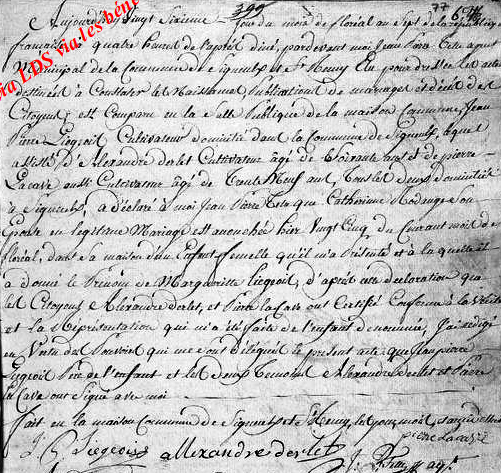 399 77
Aujourd'huy Vingt Sixieme jour du mois de floréal an Sept de la république
française, quatre heures de l'après diné, pardevant moi Jean
Municipal de la Commune de Signeulx et St Remy Elu pour dresser les actes
destinées à Constater les Naissances, Publications de mariages et décès des
Citoyens, est Comparu en la Salle Publique de la maison Commune, Jean
Pierre Liegeois Cultivateur domicilié dans la Commune de Signeulx, lequel
assisté d'Alexandre derlet Cultivateur âgé de Soixante ans et de pierre
Lacave aussi Cultivateur âgé de Trente Neuf ans, Tous les deux domiciliés
à Signeulx, a déclaré à moi Jean Pierre que Catherinne Rodange Son
Epouse en légitime Mariage est accouchée hier Vingt Cinq du Courant mois de
floréal, dans Sa maison d'un Enfant femelle qu'il m'a Présenté et à la quelle il
a donné le Prénom de Margueritte Liegeois, d'après cette déclaration que
les Citoyens Alexandre derlet, et Pierre la Cave ont Certifié Conforme à la Vérité
et la Représentation qui m'a été faite de l'enfant denommée, J'ai rédigé
en Vertu des Pouvoirs qui me sont délégués le présent acte que Jean pierre
Liegeois Père de l'enfant et les deux Temoins Alexandre derlet et Pierre
la Cave ont Signé avec moi
fait en la maison Commune de Signeulx et St Remy, les jour, mois, an
pierre Lacave
J. P. Liégeois allexandre derlet